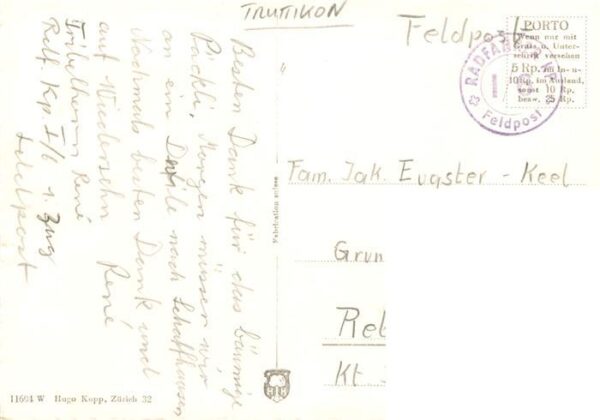 TRUTTIKON
Besten Dank für das bäumige
Päckli, Morgen müssen wir
an ein Defile nach Schaffhausen
Nochmals besten Dank und
auf Wiedersehn René
René
Radf. Kp. I/6 1. Zug
Feldpost
Feldpost
PORTO
Wenn nur mit
Gratis u. Unter-
schrift versehen
5 Rp. im In- u.
10 Rp. im Ausland,
sonst 10 Rp.
bezw. 25 Rp.
RADFAHRER
Feldpost
Fam. Jak. Eugster - Keel
Grun
Reb
Kt.
Fabrication suisse
11664 W Hugo Kopp, Zürich 32